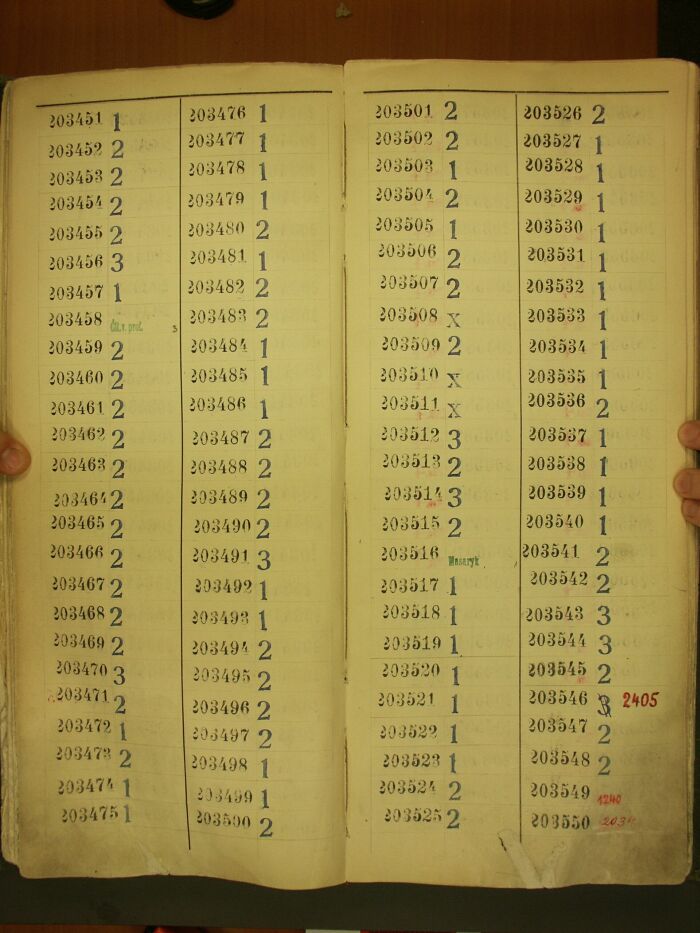 203451 1
203452 2
203453 2
203454 2
203455 2
203456 3
203457 1
203458 Čít. v. prof. 3
203459 2
203460 2
203461 2
203462 2
203463 2
203464 2
203465 2
203466 2
203467 2
203468 2
203469 2
203470 3
203471 2
203472 1
203473 2
203474 1
203475 1
203476 1
203477 1
203478 1
203479 1
203480 2
203481 1
203482 2
203483 2
203484 1
203485 1
203486 1
203487 2
203488 2
203489 2
203490 2
203491 3
203492 1
203493 1
203494 2
203495 2
203496 2
203497 2
203498 1
203499 1
203500 2
203501 2
203502 2
203503 1
203504 2
203505 1
203506 2
203507 2
203508 x
203509 2
203510 x
203511 x
203512 3
203513 2
203514 3
203515 2
203516 Masaryk
203517 1
203518 1
203519 1
203520 1
203521 1
203522 1
203523 1
203524 2
203525 2
203526 2
203527 1
203528 1
203529 1
203530 1
203531 1
203532 1
203533 1
203534 1
203535 1
203536 2
203537 1
203538 1
203539 1
203540 1
203541 2
203542 2
203543 3
203544 3
203545 2
203546 3 2405
203547 2
203548 2
203549 1240
203550